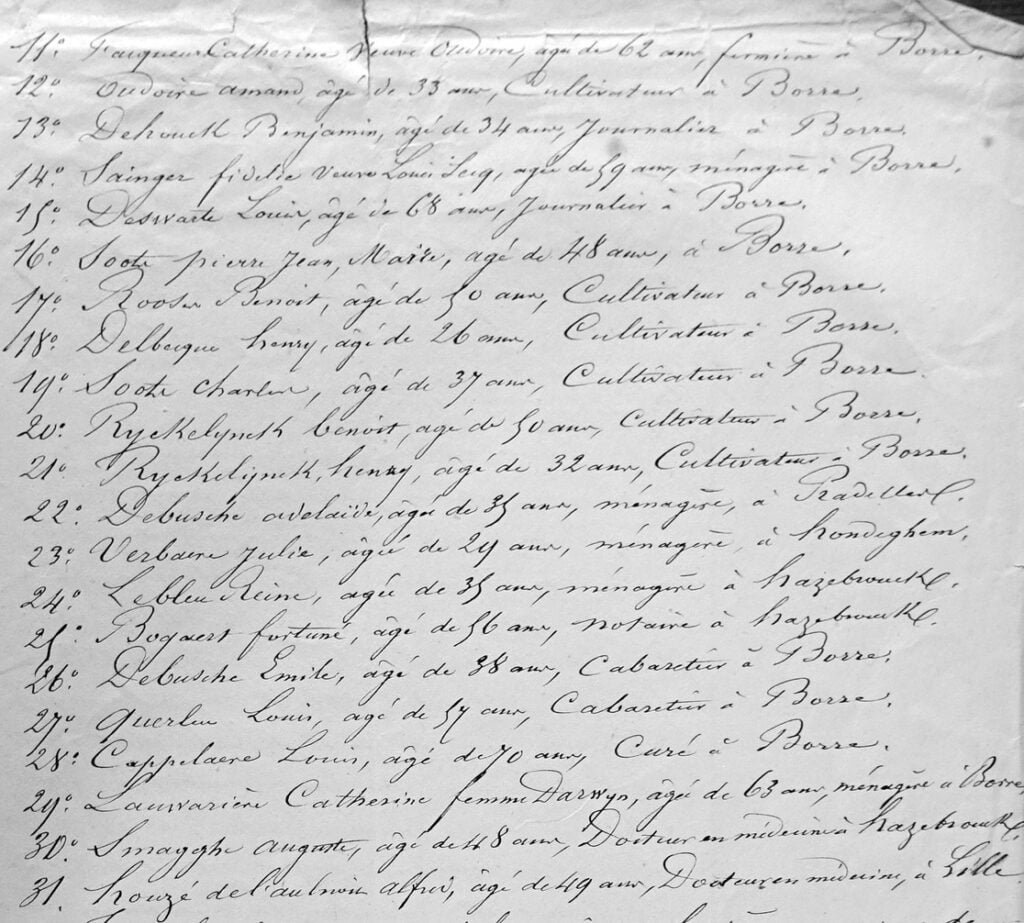 11° Fauqueur Catherine Veuve Oudoire, âgée de 62 ans, fermière à Borre.
12° Oudoire amand, âgé de 33 ans, Cultivateur à Borre.
13° Dehouck Benjamin, âgé de 34 ans, Journalier à Borre.
14° Sainger fidelie Veuve Louis Secq, agée de 59 ans, ménagère à Borre.
15° Deswarte Louis, âgé de 68 ans, Journalier à Borre.
16° Soote pierre Jean, Marie, agé de 48 ans, à Borre.
17° Rooses Benoit, âgé de 50 ans, Cultivateur à Borre.
18° Delbecque henry, âgé de 26 ans, Cultivateur à Borre.
19° Soote charles, âgé de 37 ans, Cultivateur à Borre.
20° Ryckelynck benoit, agé de 50 ans, Cultivateur à Borre.
21° Ryckelynck, henry, âgé de 32 ans, Cultivateur à Borre.
22° Debusche adelaïde, agée de 35 ans, ménagère, à Pradelles.
23° Verbaere Julie, âgée de 29 ans, ménagère, à hondeghem.
24° Lebleu Reine, agée de 35 ans, ménagère à hazebrouck.
25° Bogaert fortuné, âgé de 56 ans, notaire à hazebrouck.
26° Debusche Emile, âgé de 38 ans, Cabaretier à Borre.
27° Querleu Louis, agé de 57 ans, Cabaretier à Borre.
28° Cappelaere Louis, âgé de 70 ans, Curé à Borre.
29° Lauwarière Catherine femme Darwyn, âgée de 63 ans, ménagère à Borre
30° Smagghe auguste, âgé de 48 ans, Docteur en médecine à hazebrouck.
31. houzé de l'aulnoit alfred, âgé de 49 ans, Docteur en médecine, à Lille